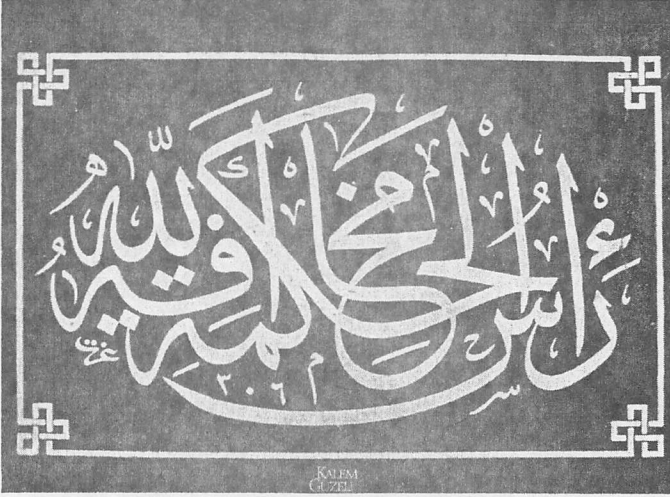 رأس الحكمة مخافة الله
عزت
٣٠٦
KALEM
GÜZELİ